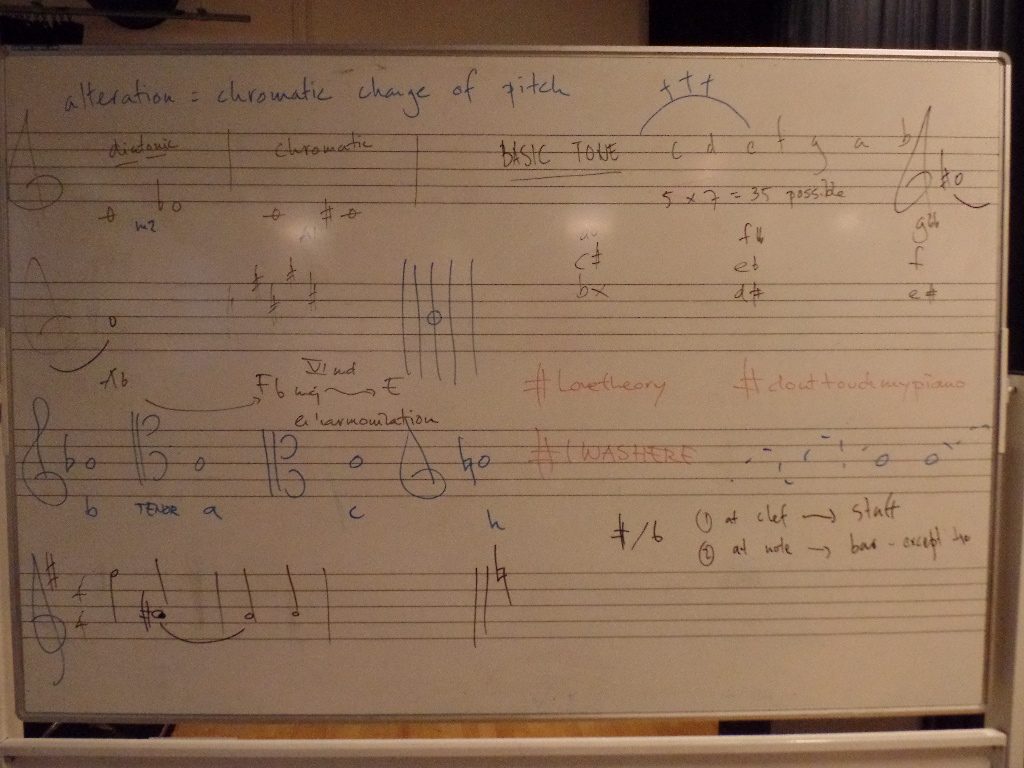 alteration = chromatic change of pitch
diatonic chromatic BASIC TONE c d e f g a b
m2 5 x 7 = 35 possible
c# eb f
bx d# e#
Ab Fb maj VI nd E
enharmonization
#Lovetheory #donttouchmypiano
#IWASHERE
b TENOR a c h
#/b ① at clef → staff
② at note → bar - except